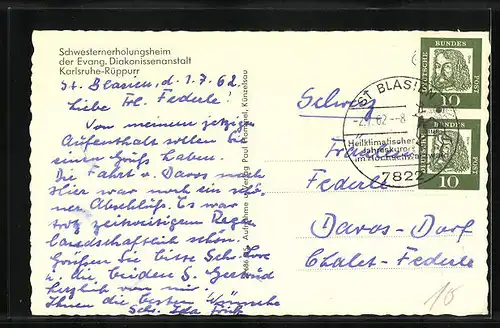 Schwesternerholungsheim
der Evang. Diakonissenanstalt
Karlsruhe-Rüppurr
St. Blasien, d. 1.7.62.
Liebe Frl. Federle!
Von meinem jetzigen
Aufenthalt sollen Sie
einen Gruß haben.
Die Fahrt v. Davos nach
Hier war noch ein schö-
ner Abschluß. Es war
trotz zeitweitigem Regen
landschaftlich schön.
Grüßen Sie bitte Schw.
u. die beiden S. Gertrud
herzlich von mir.
Ihnen die besten Wünsche
Schw. Ida
Aufnahme u. Verlag Paul Hommel, Künzelsau
Schweiz
Federle
Davos-Dorf
Chalet-Federle
ST. BLASIEN
-2.7.62-8
Heilklimatischer
Jahreskurort
im Hochschwarzwald
7822
DEUTSCHE
BUNDES
POST
10
DEUTSCHE
BUNDES
POST
10